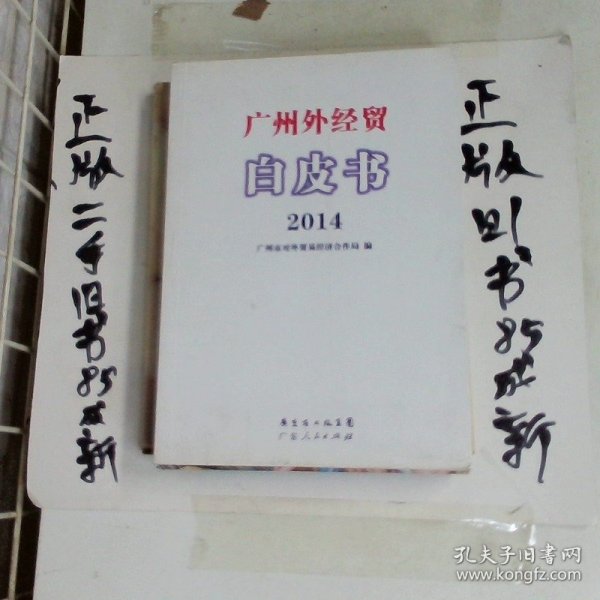 广州外经贸
白皮书
2014
广州市对外贸易经济合作局 编
广东省出版集团
广东人民出版社
正版二手旧书85成新
正版旧书85成新
孔夫子旧书网
www.kongfz.com